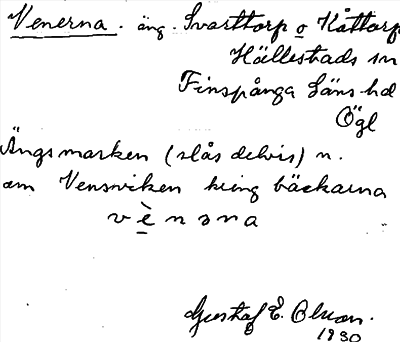 Venerna. äng. Svarttorp o Kåttorp
Hällestads sn
Finspånga läns hd
Ögl
Ängsmarken (slås delvis) n.
om Vensviken kring bäckarna
vènəna
Gustaf E. Olson.
1930